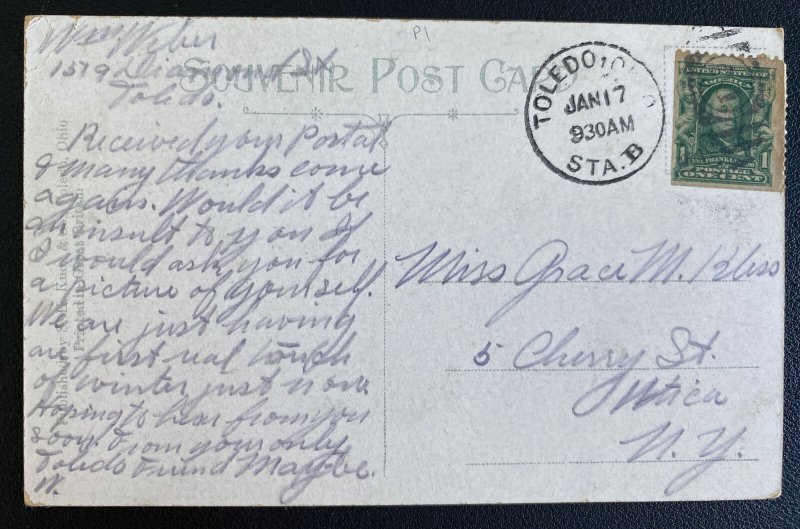 Wm Weber
1579 Diamond St
Toledo.
SOUVENIR POST CARD
P1
Received your Postal
& many thanks come
again. Would it be
an insult to you if
I would ask you for
a picture of yourself.
We are just having
are first real touch
of winter just now
Hoping to hear from you
soon. From your only
Toledo Friend Maybe.
W.
Ohio
Printed in Great Britain
TOLEDO, OHIO
JAN 17
930AM
STA. B
FRANKLIN
1
POSTAGE
ONE CENT
Miss Grace M. Bliss
5 Cherry St.
Utica
N.Y.